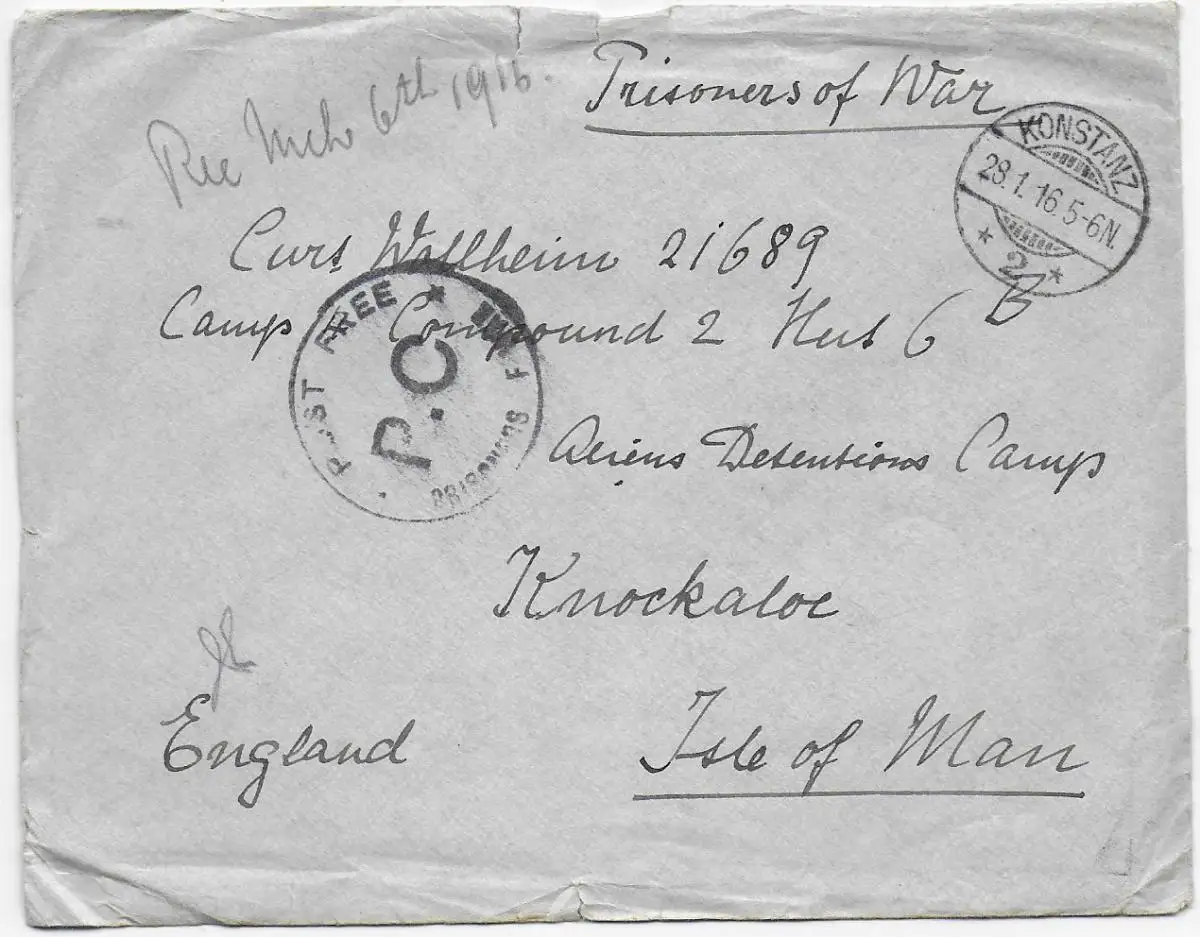 Rec Mch 6th 1916.
Prisoners of War
KONSTANZ
28.1.16.5-6N.
* 2 *
Curt Wollheim 21689
Camp Compound 2 Hut 6 B
Aliens Detentions Camp
Knockaloe
England
Isle of Man
POST FREE *
P.C.
PRISONERS